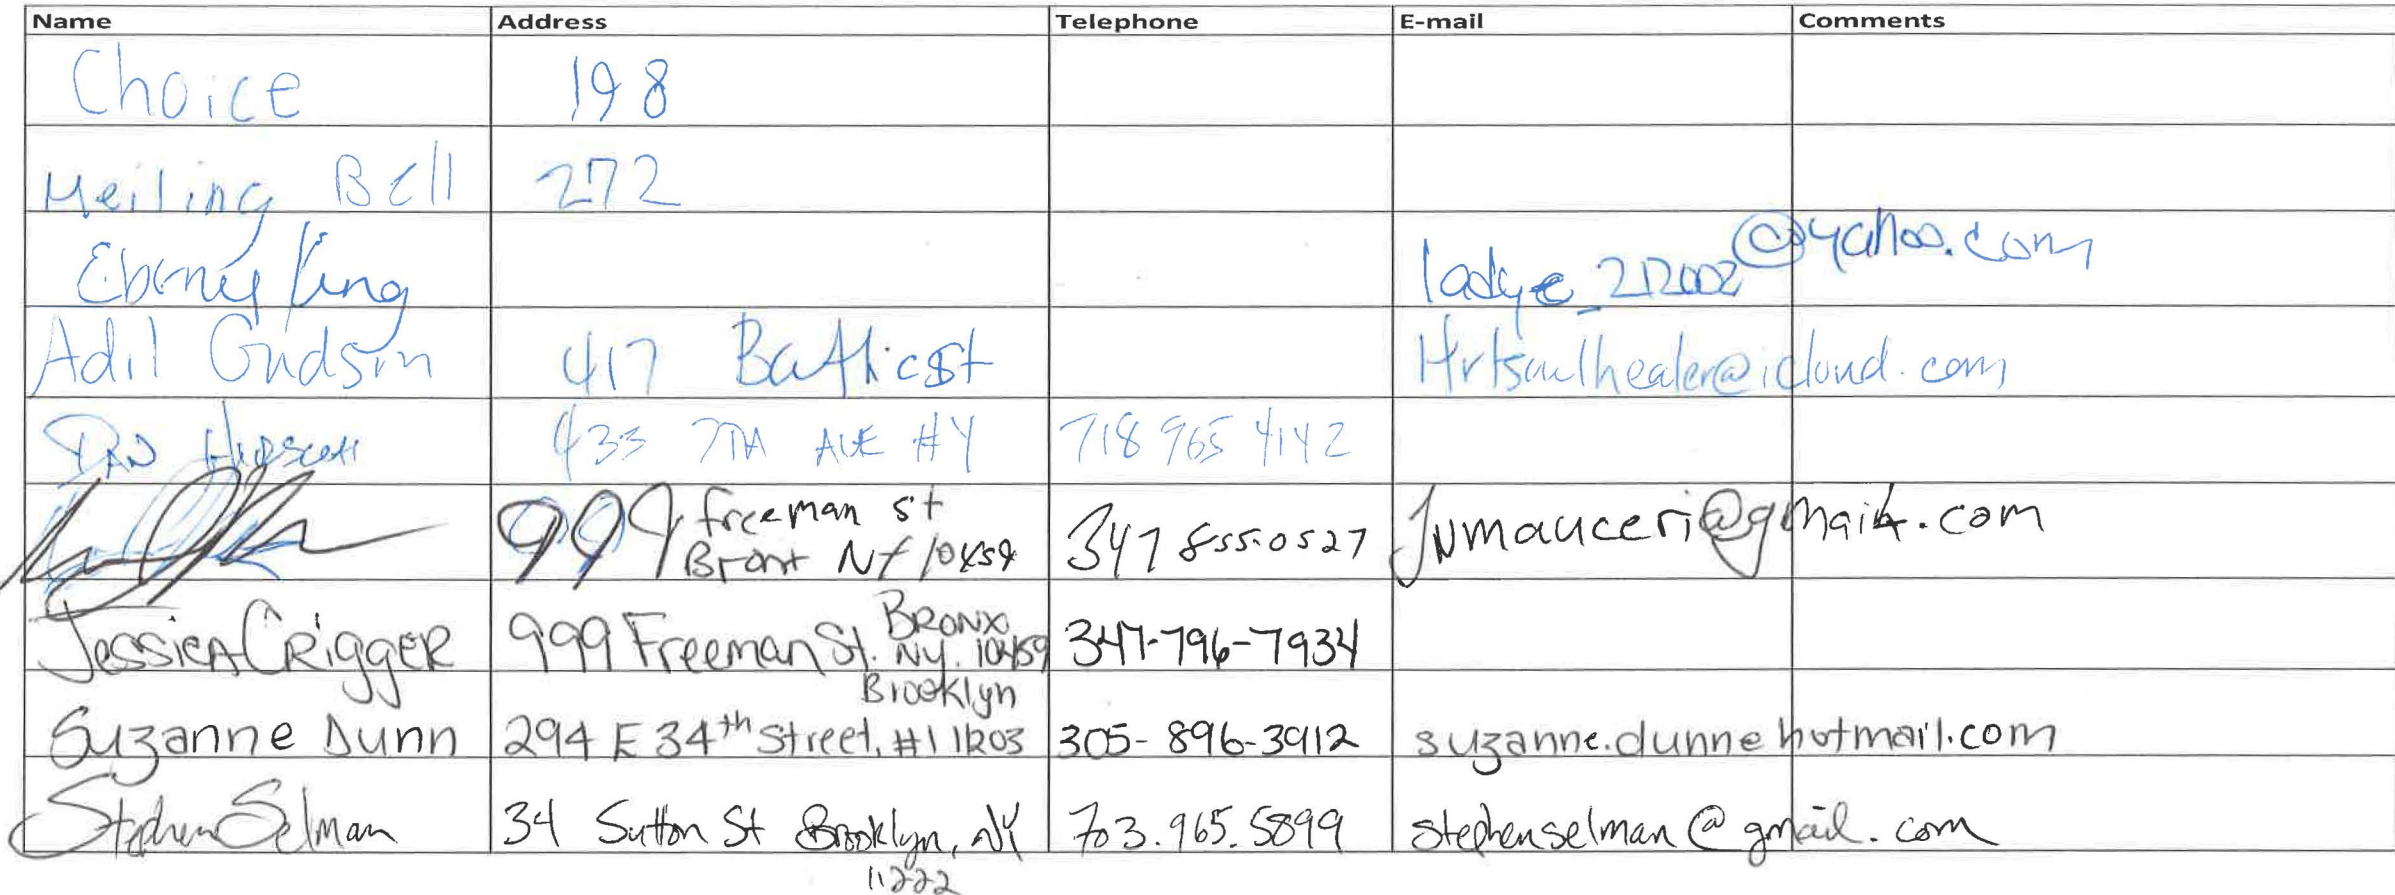 Name Address Telephone E-mail Comments
Choice 198
Meiling Bell 272
Ebony King ladye_212002@yahoo.com
Adil Gudson 417 Baltic St Hrtsoulhealer@icloud.com
Dan 433 7TH AVE #4 718 965 4142
999 freeman st
Bronx NY 10459 347 855-0527 Jvmauceri@gmail.com
Jessica Crigger 999 Freeman St. Bronx NY. 10459 347-796-7934
Brooklyn
Suzanne Dunn 294 E 34th Street, #1 11203 305-896-3912 suzanne.dunne hotmail.com
Stephen Selman 34 Sutton St Brooklyn, NY 703.965.5899 stephenselman@gmail.com
11222